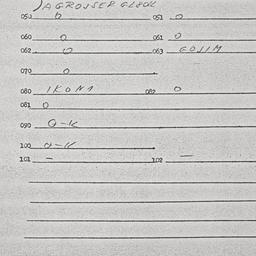 050 0 051 0
060 0 061 0
062 0 063 GOJIM
070 0
080 IKONA 082 0
081 0
090 0-K
100 0-K
101 - 102 -